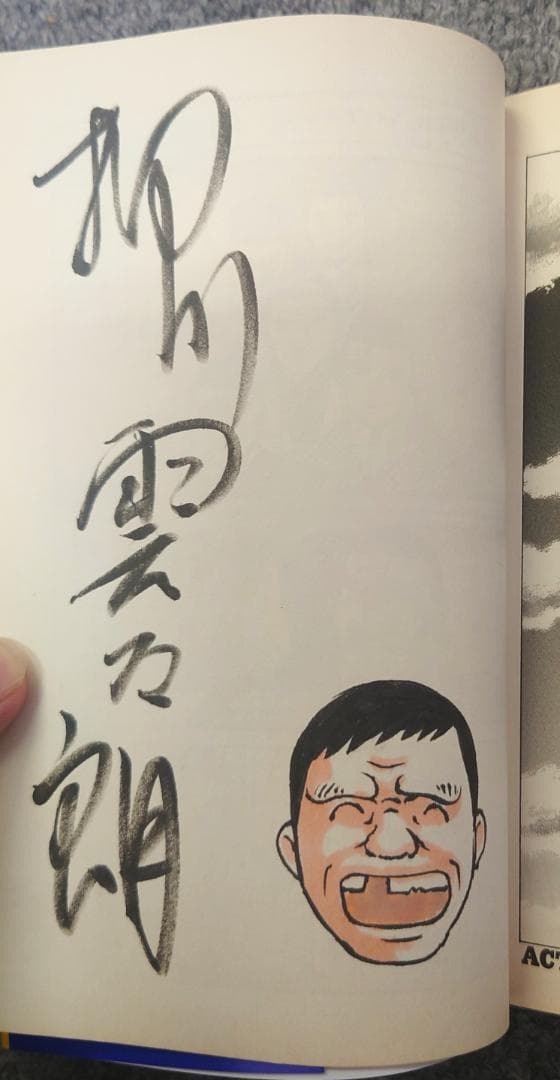 押川雲太朗
AC